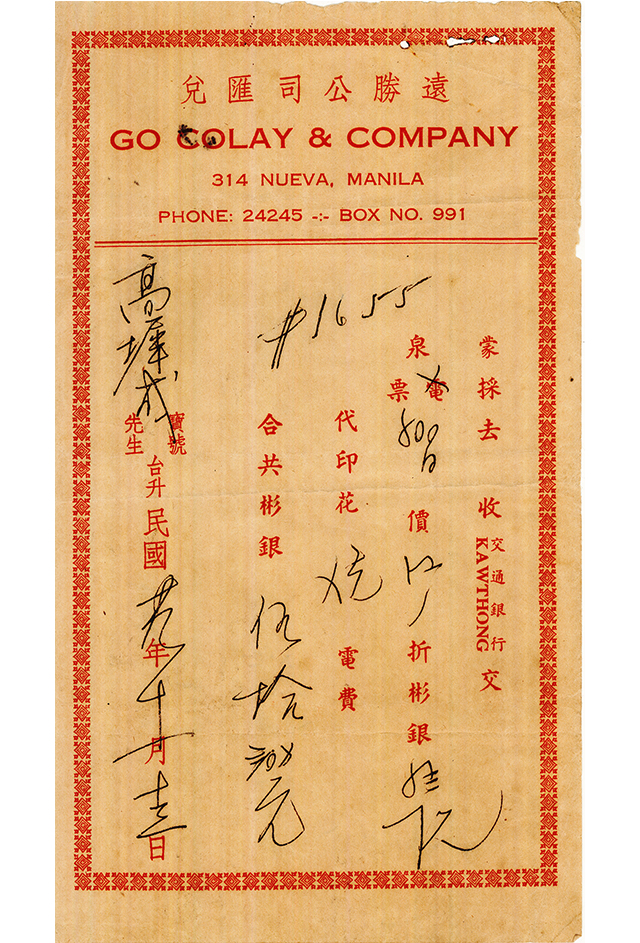 遠勝公司匯兌
GO COLAY & COMPANY
314 NUEVA, MANILA
PHONE: 24245 -:- BOX NO. 991
蒙採去 收 交通銀行 KAWTHONG 交
泉 電票 價 折彬銀
代印花 電費
#1655
合共彬銀 伍拾 元
高墀成 寶號先生 台升 民國 年十月 日